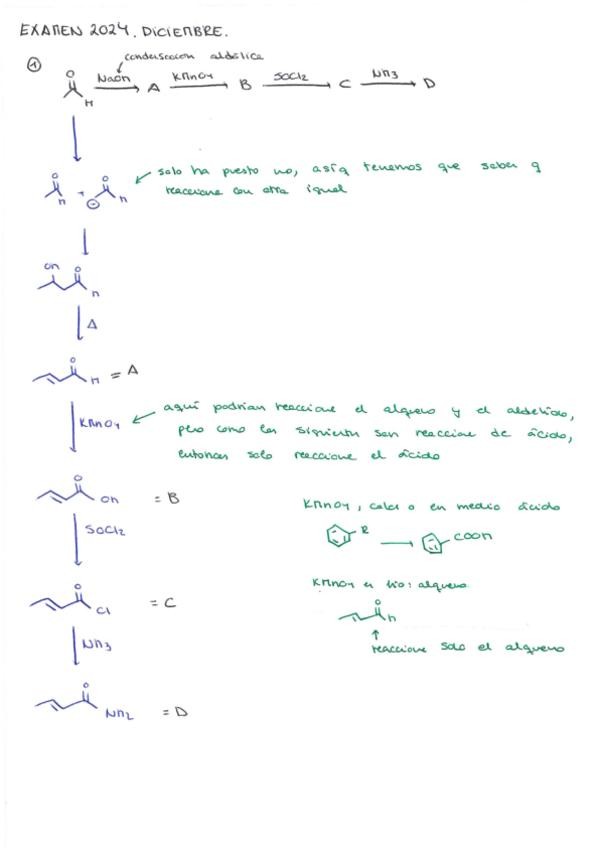 EXAMEN 2024. DICIEMBRE.
condensación aldólica
① O H NaOH A KMnO4 B SOCl2 C NH3 D
O H + O ⊖ H
solo ha puesto uno, así q tenemos que saber q
reacciona con otra igual
OH O H
Δ
O H = A
KMnO4
aquí podrían reaccionar el alqueno y el aldehído,
pero como las siguientes son reacciones de ácido,
entonces solo reacciona el ácido
O OH = B
SOCl2
KMnO4, calor o en medio ácido
R COOH
O Cl = C
KMnO4 en frío: alqueno
O H
reacciona solo el alqueno
NH3
O NH2 = D